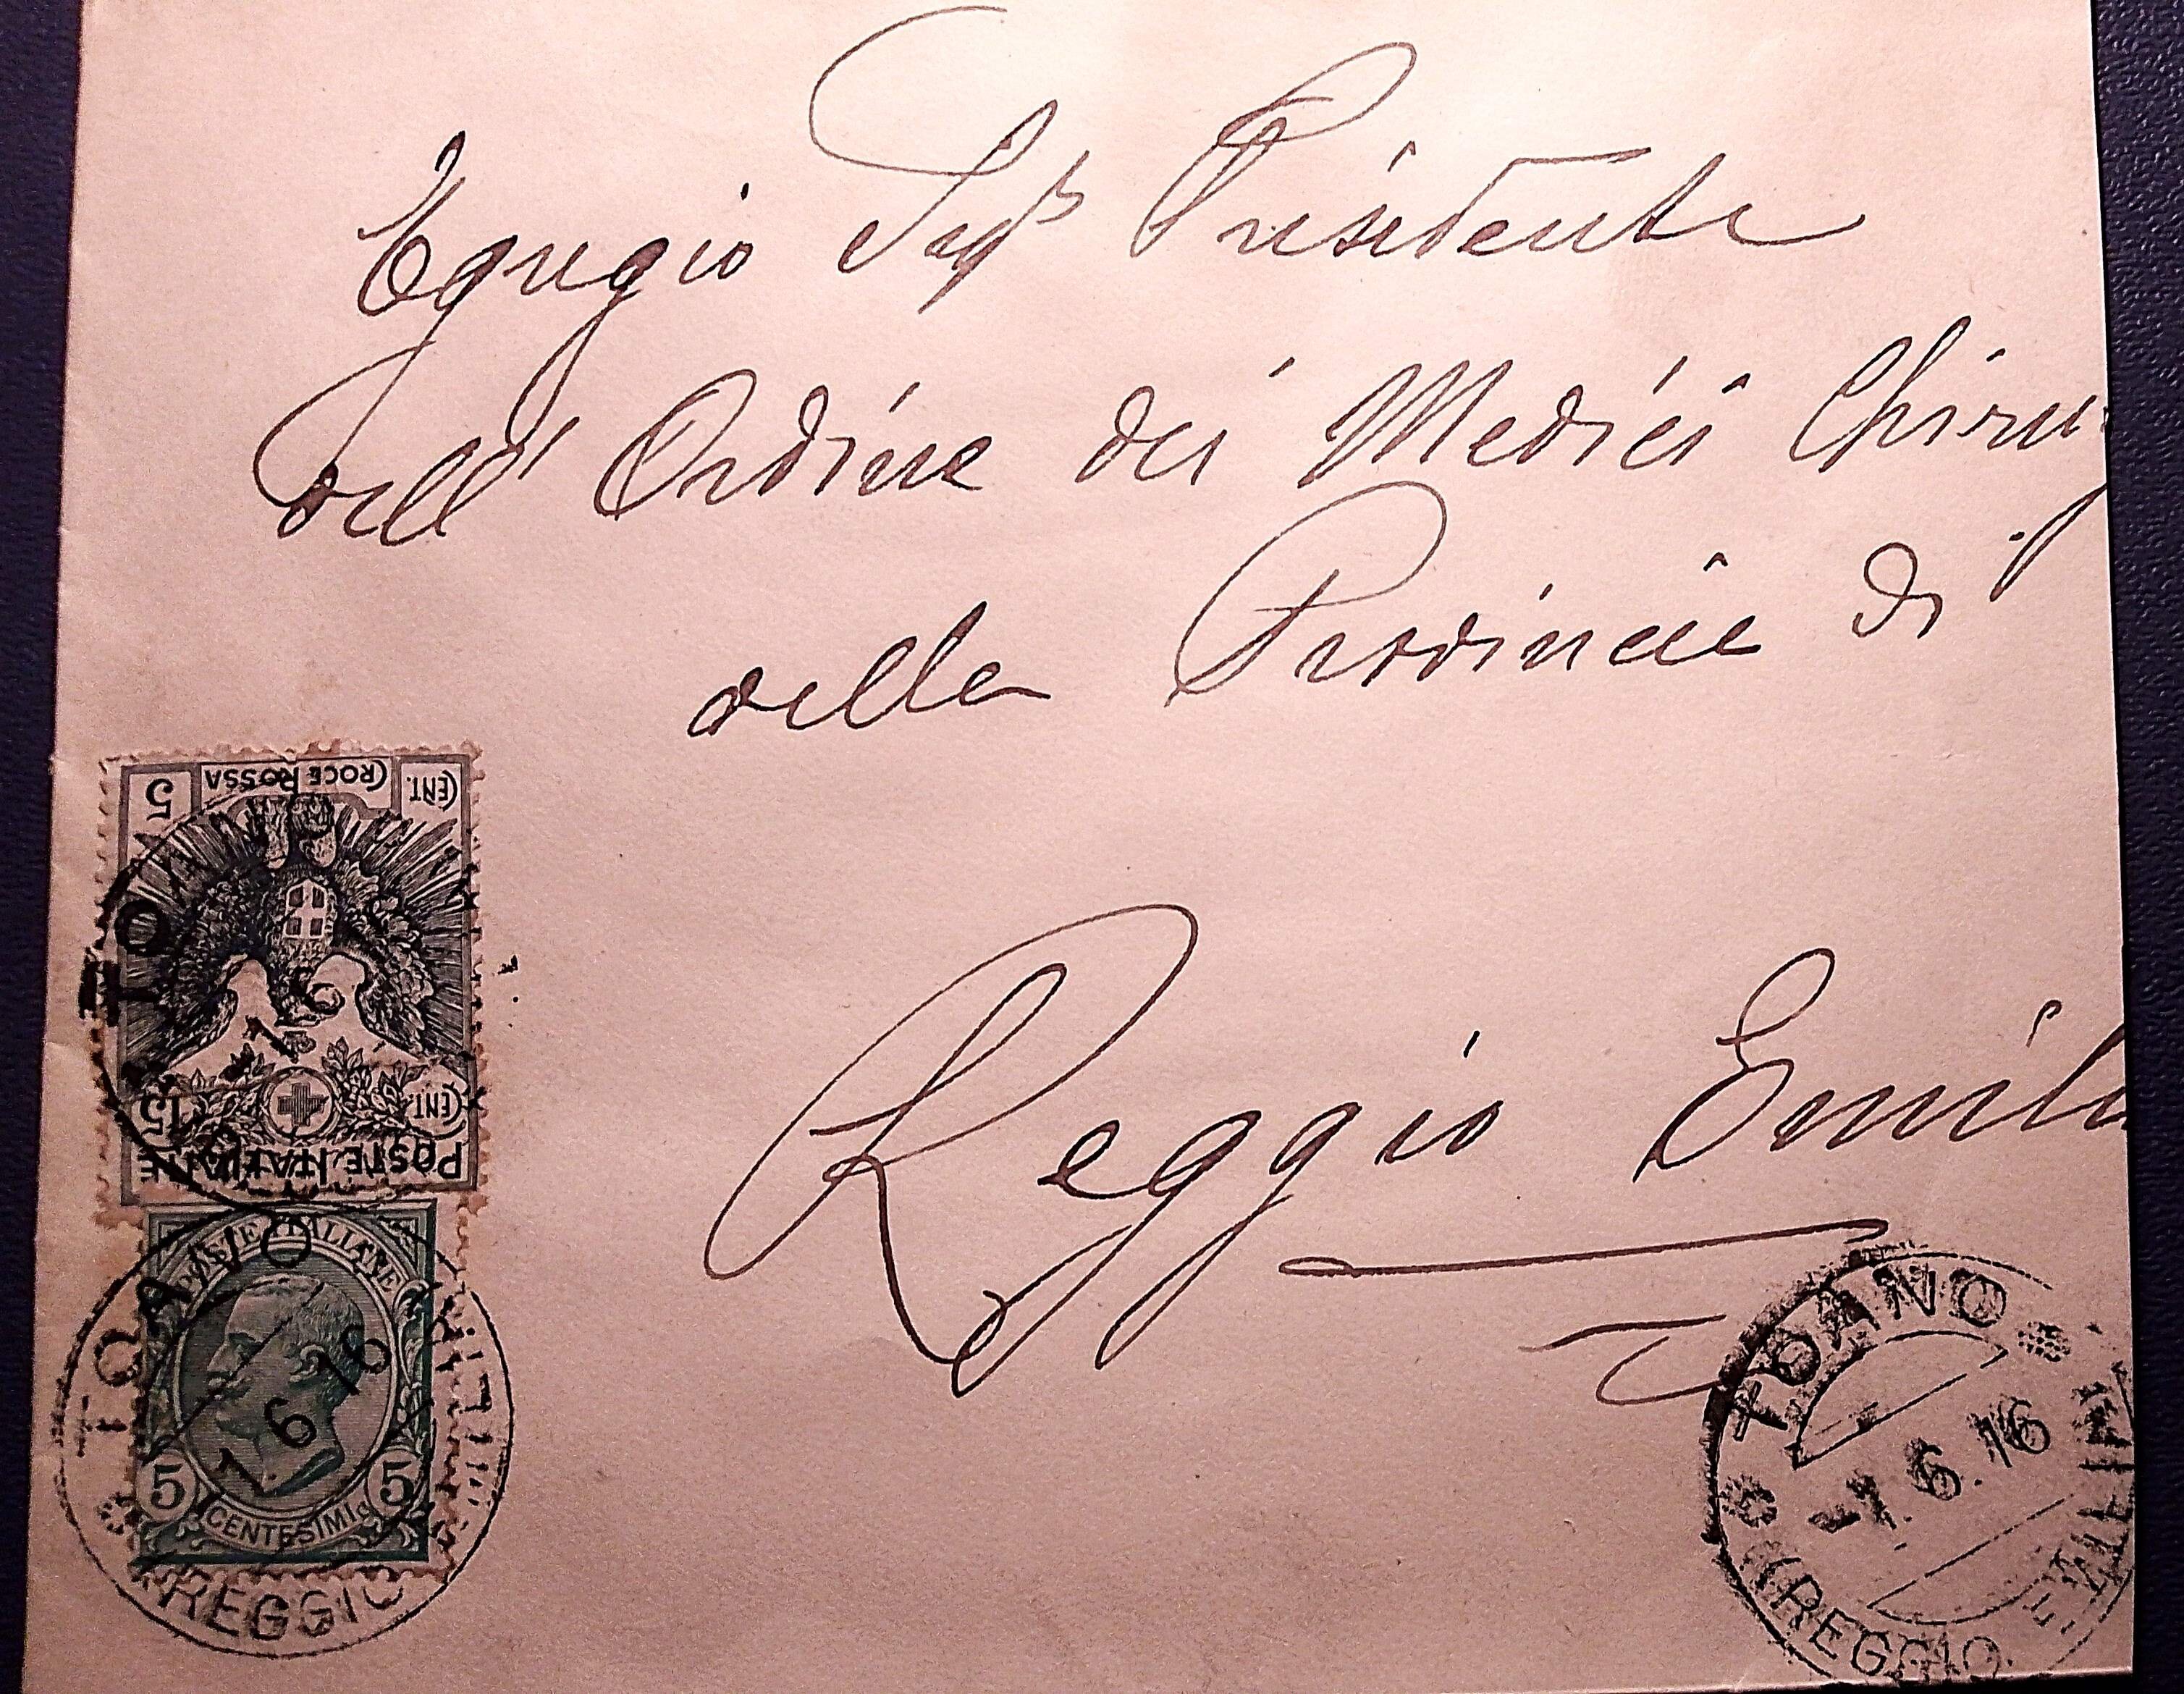 Egregio Sigr Presidente
dell'Ordine dei Medici Chirurg
della Provincia di
Reggio Emilia
5 CROCE ROSSA CENT.
15 CENT.
POSTE ITALIANE
TOANO
POSTE ITALIANE
5 5
CENTESIMI
TOANO
1 6 16
REGGIO EMILIA
TOANO
-1.6.16
(REGGIO EMILI